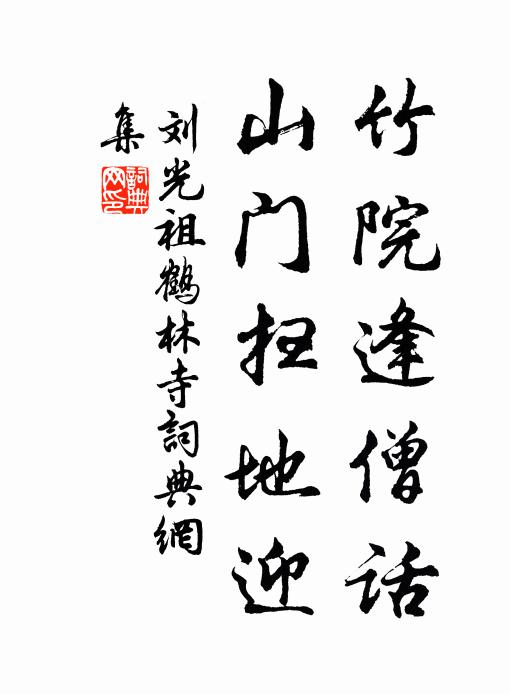 竹院逢僧话
山门扫地迎
刘光祖鹤林寺詞典網
集
詞典网印